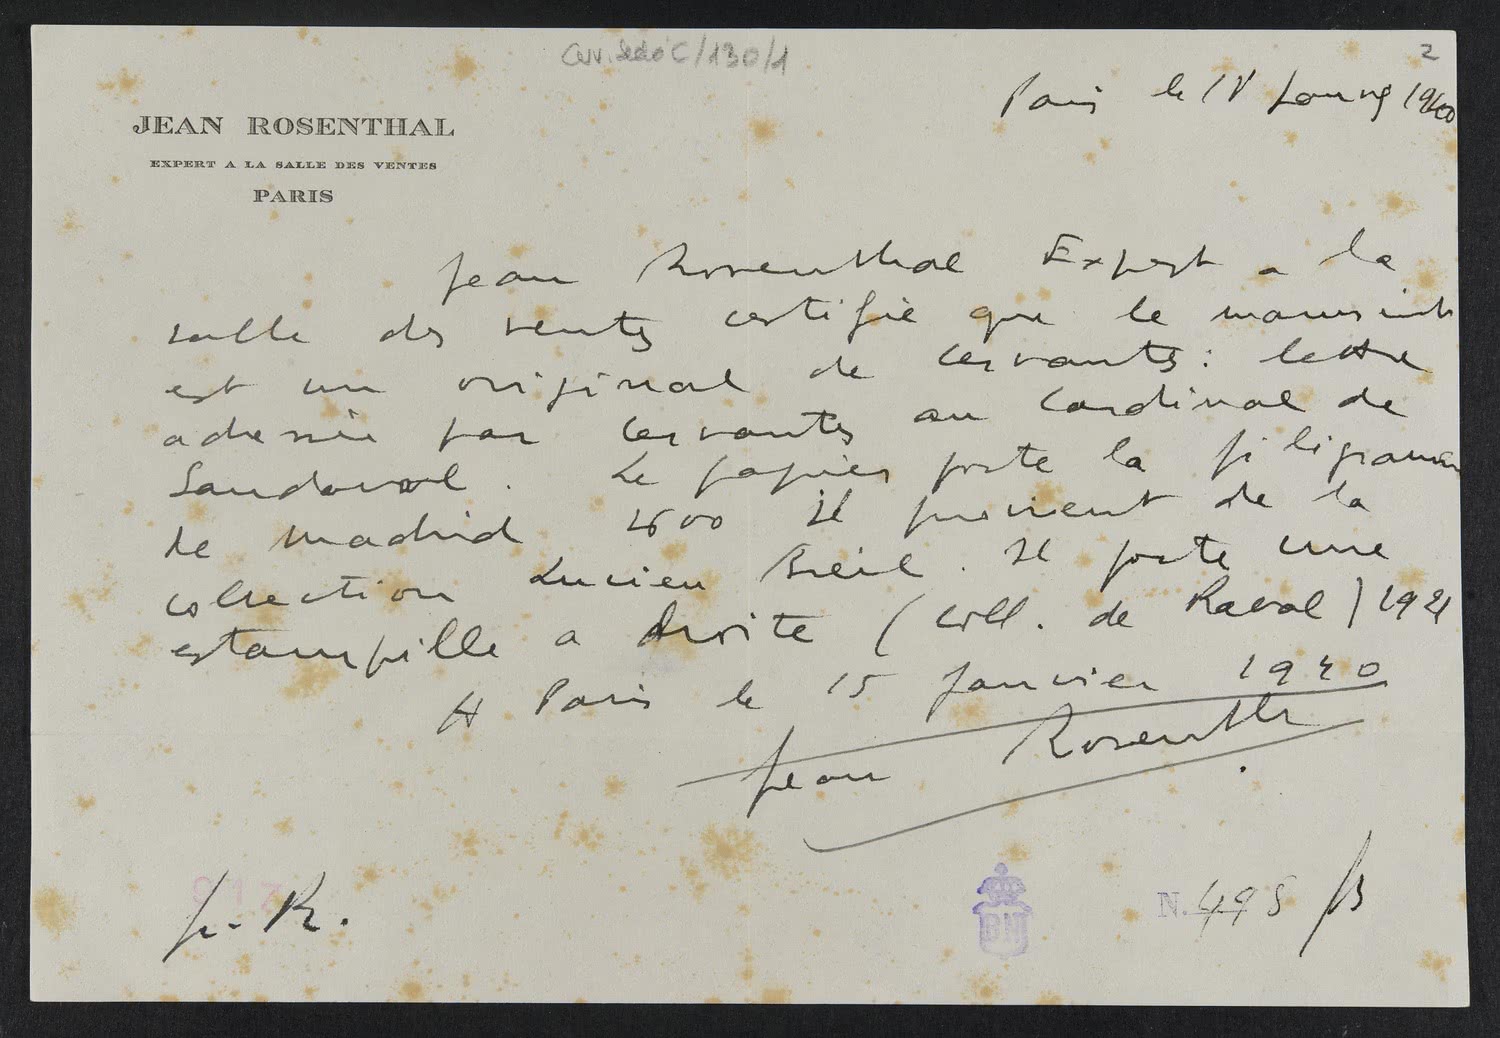 Cerv. Sedó C/130/1
2
JEAN ROSENTHAL
EXPERT A LA SALLE DES VENTES
PARIS
Paris le 15 1940
Jean Rosenthal Expert a la
salle des ventes certifie que le manuscrit
est un original de Cervantes : lettre
adressée par Cervantes au Cardinal de
Sandoval . Le papier porte la filigramme
de Madrid 1600 Il provient de la
collection Lucien . Il porte une
estampille a droite ( coll. de Raval ) 1921
A Paris le 15 Janvier 1940
Jean Rosenthal
917
J. R.
BN
N. 498